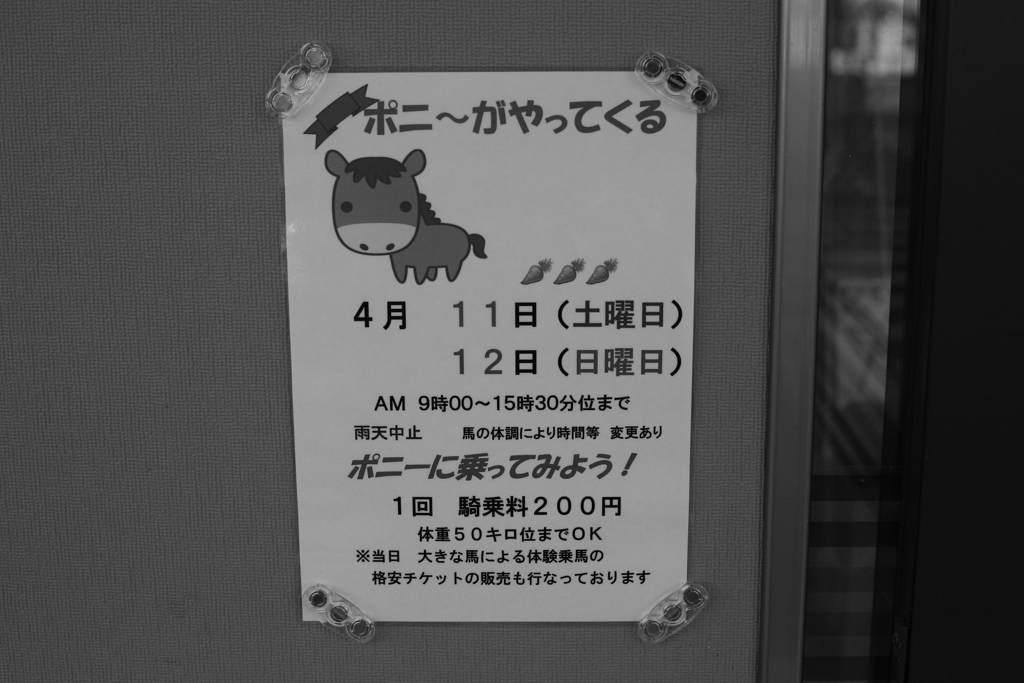 ポニ～がやってくる
４月　１１日（土曜日）
１２日（日曜日）
AM 9時00～15時30分位まで
雨天中止　馬の体調により時間等　変更あり
ポニーに乗ってみよう！
１回　騎乗料２００円
体重５０キロ位までＯＫ
※当日　大きな馬による体験乗馬の
格安チケットの販売も行なっております